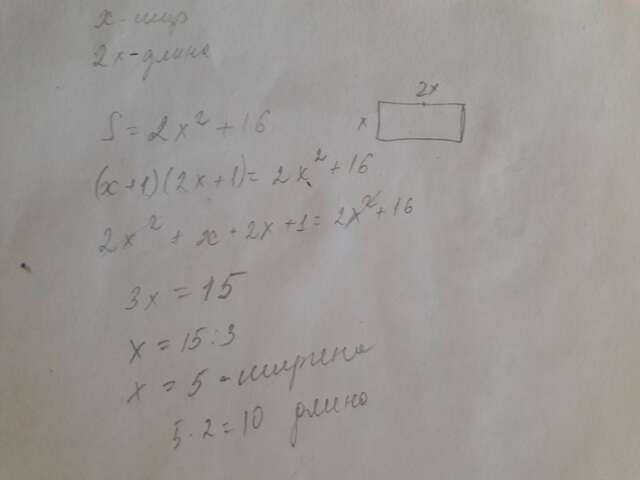 x - шир
2x - длина
2x
x
S = 2x² + 16
(x+1)(2x+1) = 2x² + 16
2x² + x + 2x + 1 = 2x² + 16
3x = 15
x = 15 : 3
x = 5 - ширина
5 · 2 = 10 длина